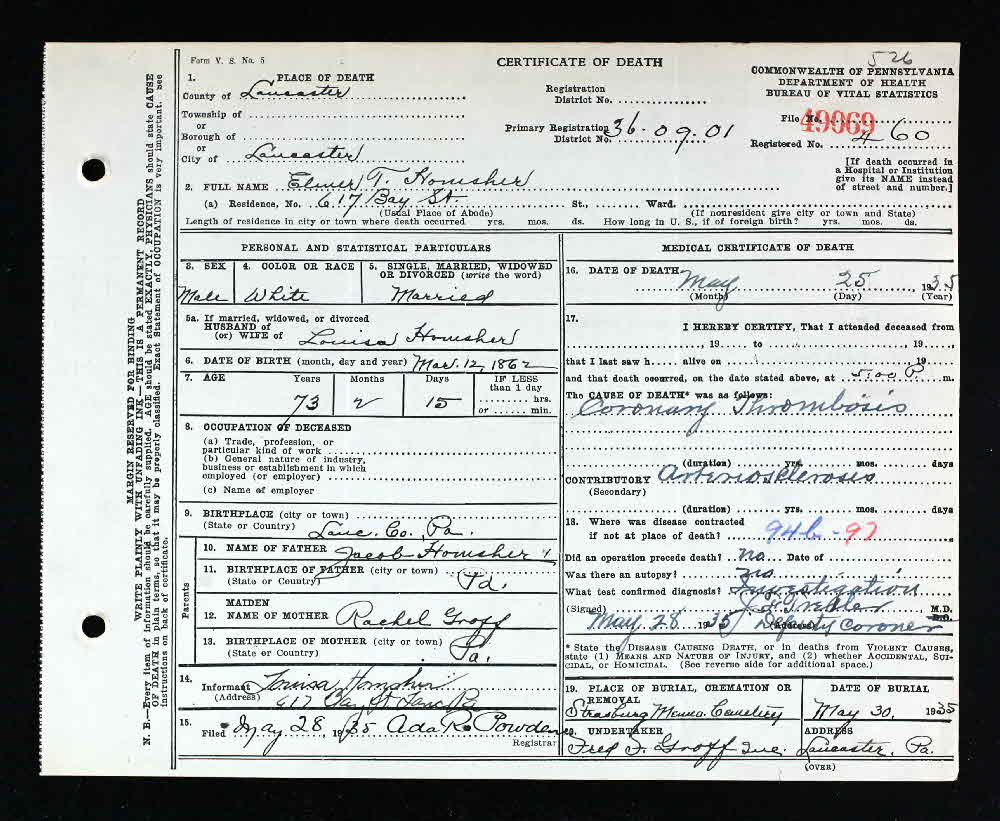 526
Form V. S. No. 5
CERTIFICATE OF DEATH
COMMONWEALTH OF PENNSYLVANIA
DEPARTMENT OF HEALTH
BUREAU OF VITAL STATISTICS
1. PLACE OF DEATH
County of Lancaster
Township of
or
Borough of
or
City of Lancaster
Registration
District No.
Primary Registration
District No. 36-09-01
File No. 49969
Registered No. 460
[If death occurred in
a Hospital or Institution
give its NAME instead
of street and number.]
2. FULL NAME Elmer T. Homsher
(a) Residence, No. 617 Bay St. St., Ward.
(Usual Place of Abode) (If nonresident give city or town and State)
Length of residence in city or town where death occurred yrs. mos. ds. How long in U. S., if of foreign birth? yrs. mos. ds.
PERSONAL AND STATISTICAL PARTICULARS
3. SEX 4. COLOR OR RACE 5. SINGLE, MARRIED, WIDOWED
OR DIVORCED (write the word)
Male White Married
5a. If married, widowed, or divorced
HUSBAND of
(or) WIFE of Louisa Homsher
6. DATE OF BIRTH (month, day and year) Mar. 12, 1862
7. AGE Years Months Days IF LESS
than 1 day
hrs.
or min.
73 2 15
8. OCCUPATION OF DECEASED
(a) Trade, profession, or
particular kind of work
(b) General nature of industry,
business or establishment in which
employed (or employer)
(c) Name of employer
9. BIRTHPLACE (city or town)
(State or Country) Lanc. Co., Pa.
Parents
10. NAME OF FATHER Jacob Homsher
11. BIRTHPLACE OF FATHER (city or town)
(State or Country) Pa.
12. MAIDEN
NAME OF MOTHER Rachel Groff
13. BIRTHPLACE OF MOTHER (city or town)
(State or Country) Pa.
14.
Informant Louisa Homsher
(Address) 617 Bay St. Lanc Pa
15.
Filed May 28, 1935 Ada R. Powden
Registrar
MEDICAL CERTIFICATE OF DEATH
16. DATE OF DEATH May 25 1935
(Month) (Day) (Year)
17.
I HEREBY CERTIFY, That I attended deceased from
, 19 to , 19
that I last saw h alive on , 19
and that death occurred, on the date stated above, at 5:00 P. m.
The CAUSE OF DEATH* was as follows:
Coronary Thrombosis
(duration) yrs. mos. days
CONTRIBUTORY Arteriosclerosis
(Secondary)
(duration) yrs. mos. days
18. Where was disease contracted
if not at place of death? 94b-97
Did an operation precede death? No. Date of
Was there an autopsy? No
What test confirmed diagnosis? Investigation
(Signed) M.D.
May 28 1935 (Address) Deputy Coroner
* State the DISEASE CAUSING DEATH, or in deaths from VIOLENT CAUSES,
state (1) MEANS AND NATURE OF INJURY, and (2) whether ACCIDENTAL, SUI-
CIDAL, or HOMICIDAL. (See reverse side for additional space.)
19. PLACE OF BURIAL, CREMATION OR
REMOVAL
Strasburg Menno. Cemetery
DATE OF BURIAL
May 30, 1935
20. UNDERTAKER
Fred F. Groff Inc.
ADDRESS
Lancaster, Pa.
(OVER)
MARGIN RESERVED FOR BINDING
WRITE PLAINLY, WITH UNFADING INK—THIS IS A PERMANENT RECORD
N. B.—Every item of information should be carefully supplied. AGE should be stated EXACTLY. PHYSICIANS should state CAUSE
OF DEATH in plain terms, so that it may be properly classified. Exact Statement of OCCUPATION is very important. See
instructions on back of certificate.